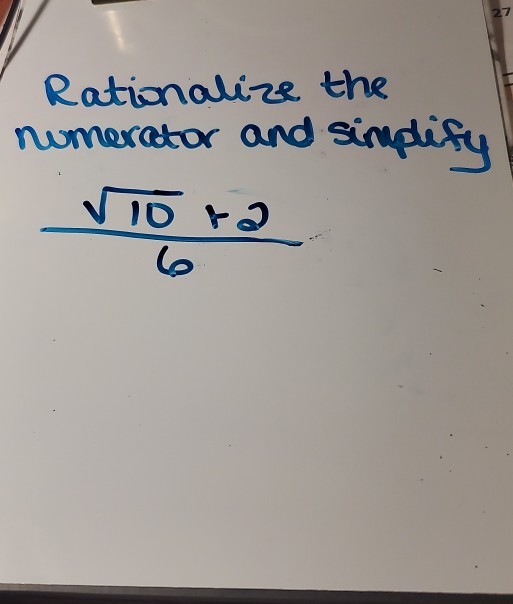 27
Rationalize the
numerator and simplify
√10 + 2
6